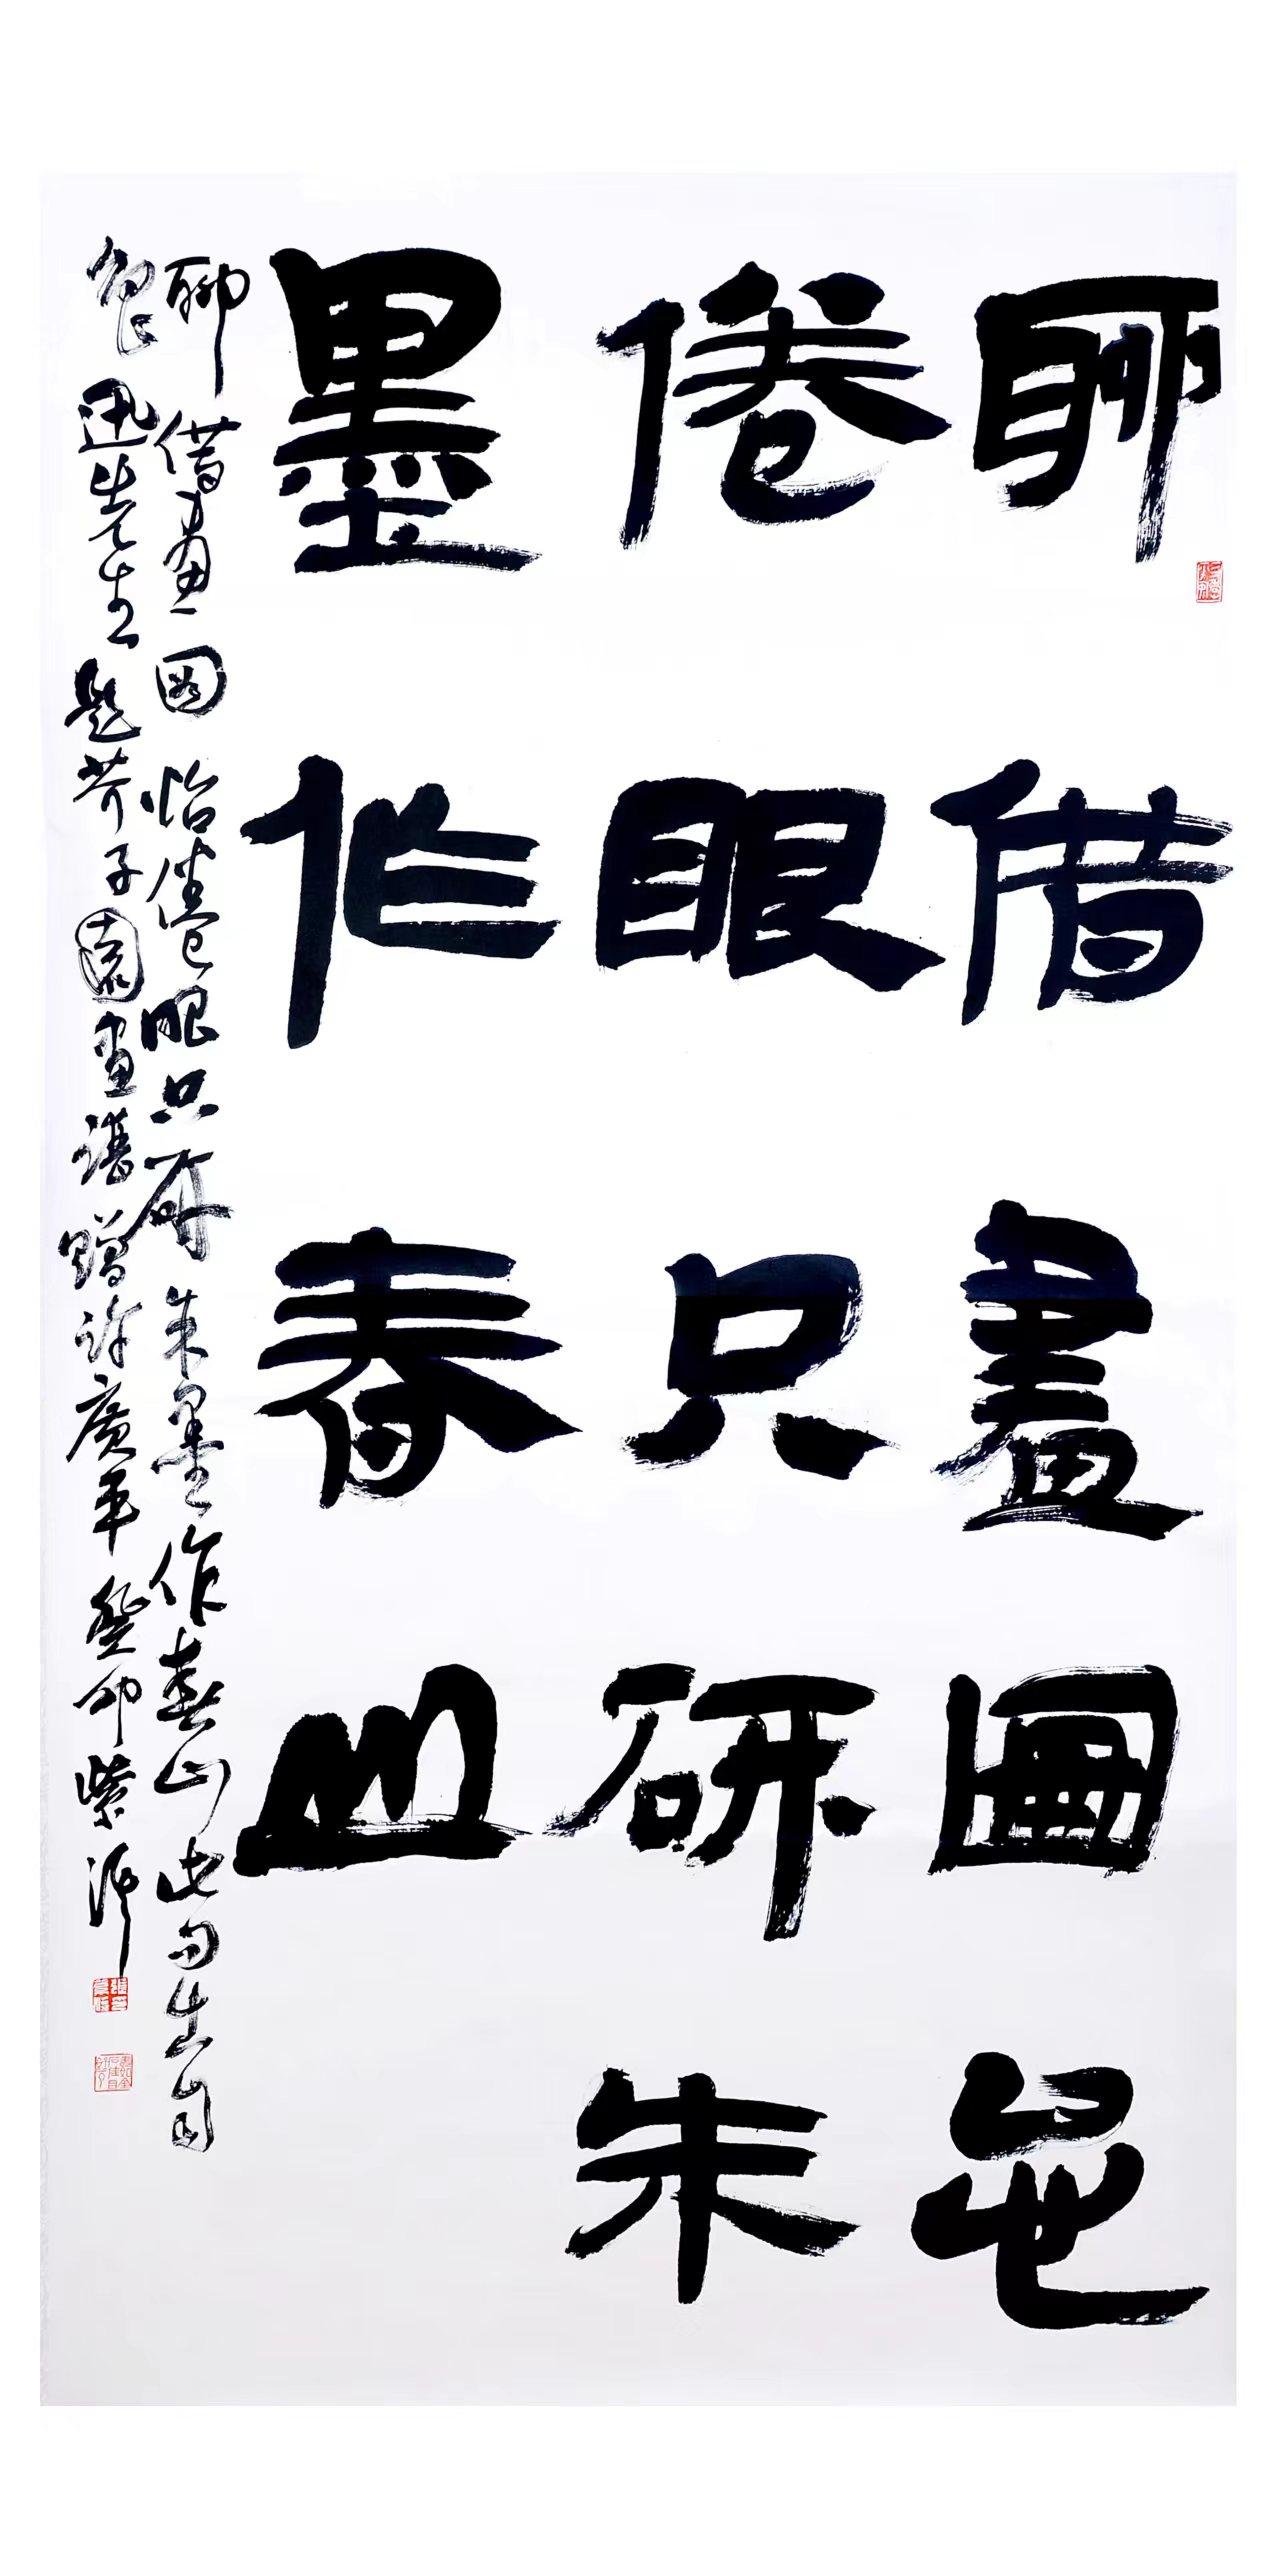 聊借畫圖怡
倦眼只研朱
墨作春山
聊借畫図怡倦眼只研朱墨作春山此句出自
魯迅先生題芥子園畫譜贈許廣平癸卯紫